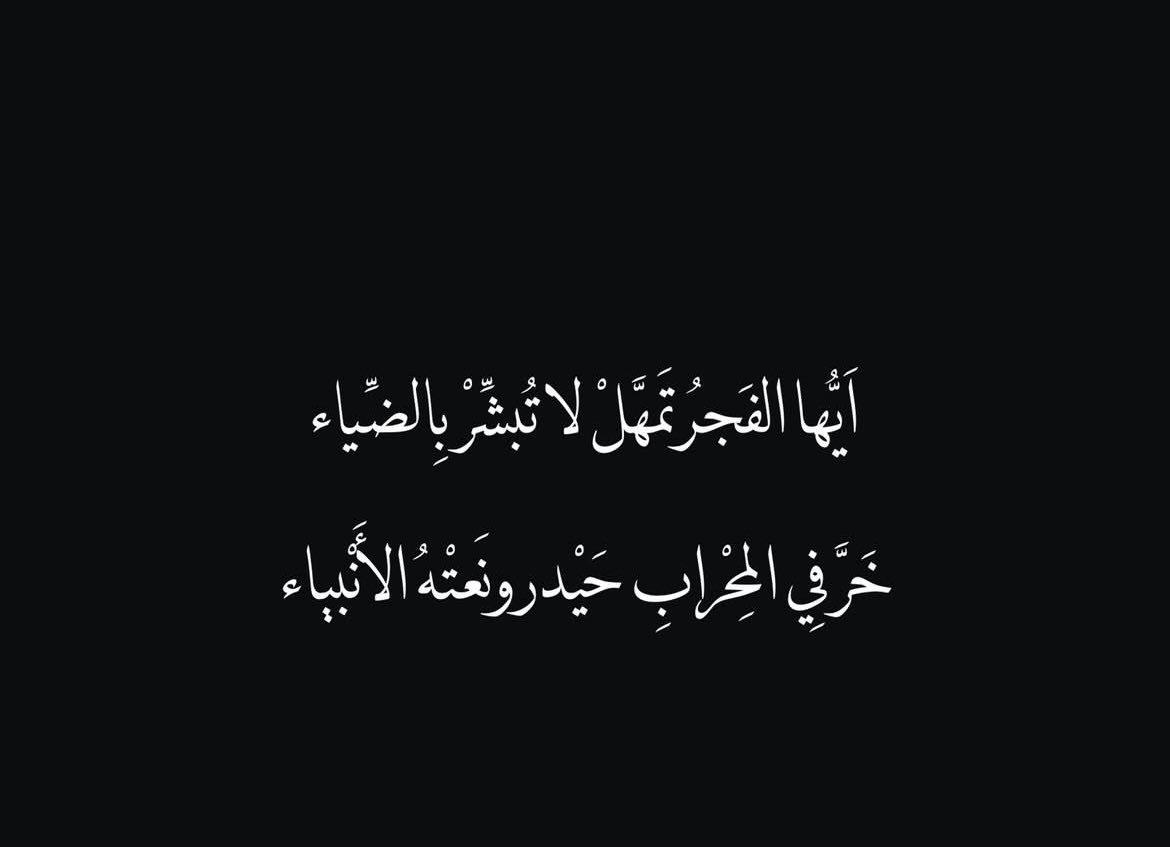 اَيُّها الفَجرُ تَمَهَّلْ لا تُبشِّرْ بِالضِّياء
خَرَّ فِي المِحْرابِ حَيْدر ونَعَتْهُ الأَنْبياء